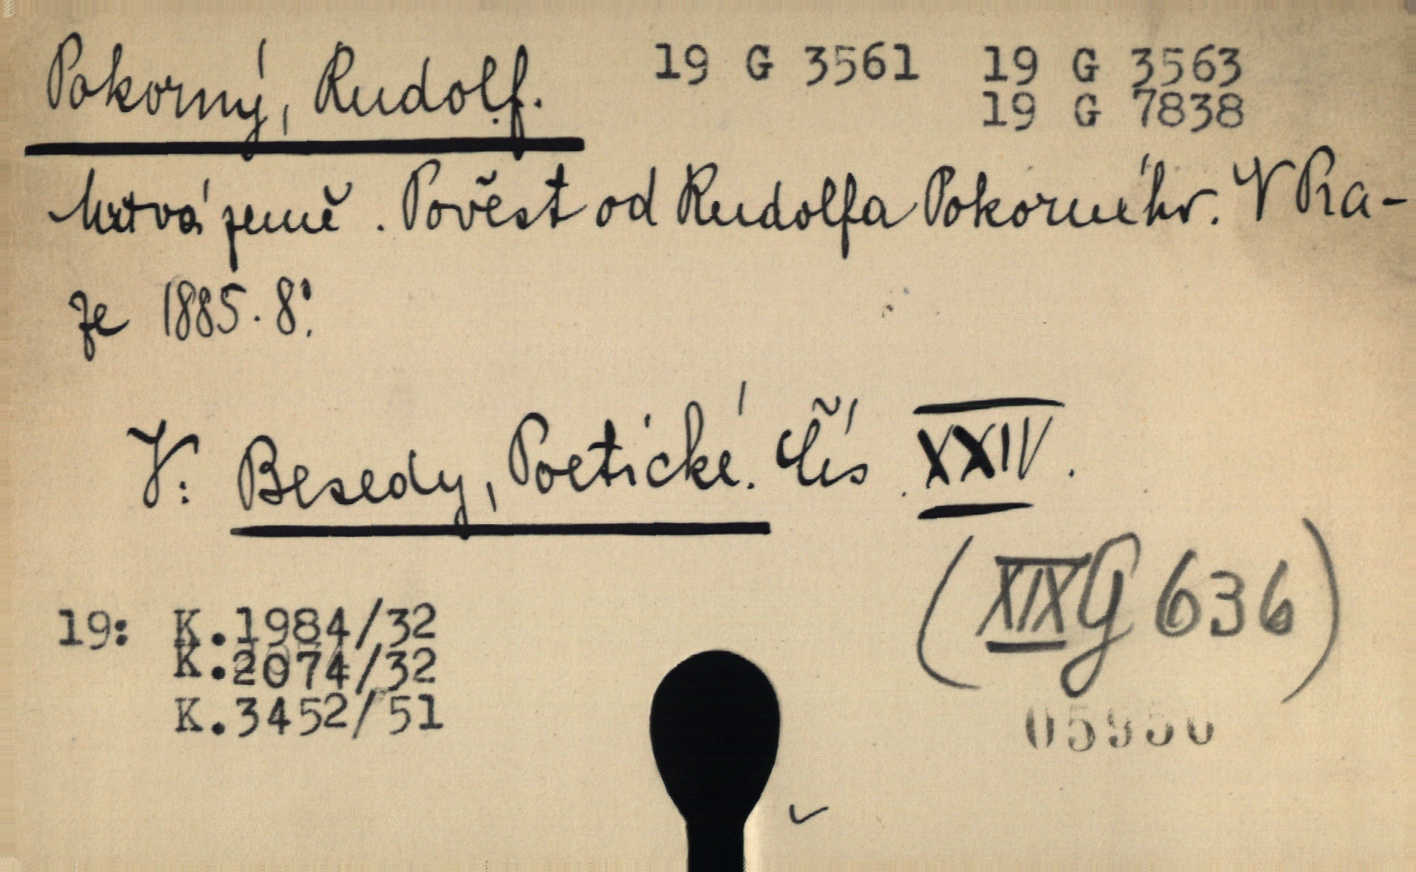 Pokorný, Rudolf. 19 G 3561 19 G 3563
19 G 7838
Mrtvá země. Pověst od Rudolfa Pokorného. V Pra-
ze 1885. 8°.
V: Besedy, Poetické. Čís. XXIV.
(XIX G 636)
19: K.1984/32
K.2074/32
K.3452/51